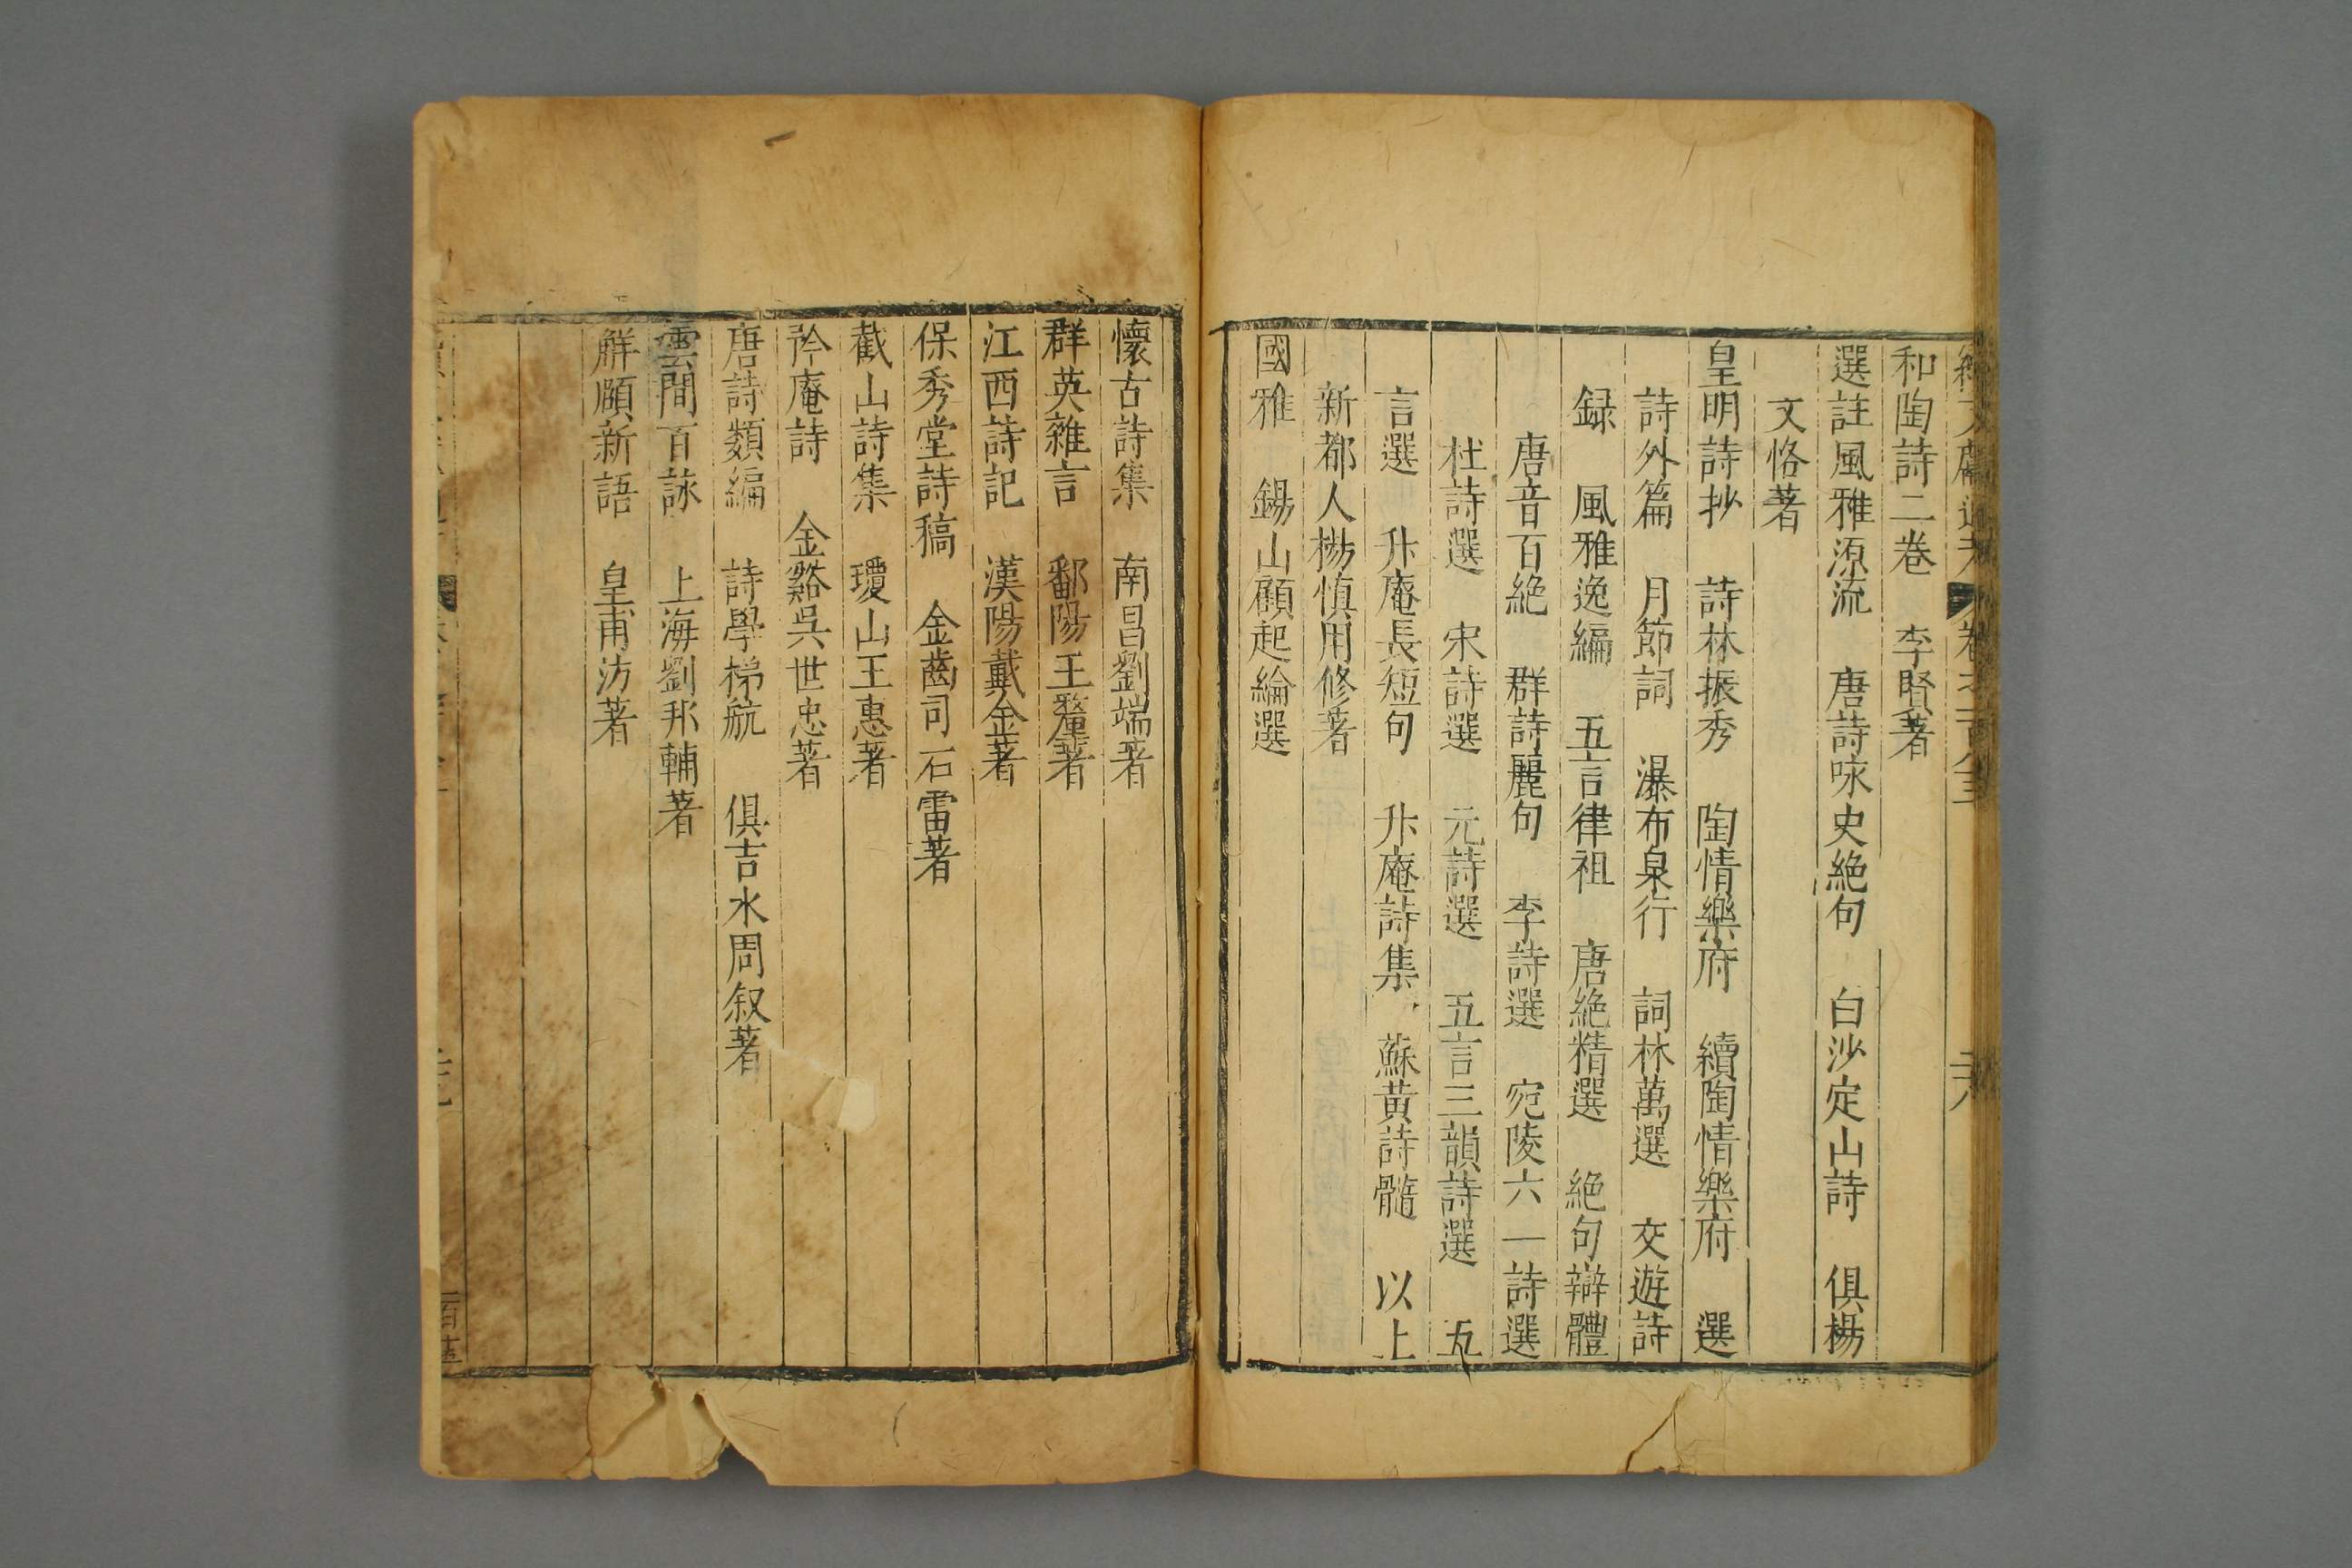 和陶詩二卷　李賢著
選註風雅源流　唐詩咏史絕句　白沙定山詩　俱楊
文恪著
皇明詩抄　詩林振秀　陶情樂府　續陶情樂府　選
詩外篇　月節詞　瀑布泉行　詞林萬選　交遊詩
録　風雅逸編　五言律祖　唐絕精選　絕句辯體
唐音百絕　群詩麗句　李詩選　宛陵六一詩選
杜詩選　宋詩選　元詩選　五言三韻詩選　五
言選　升庵長短句　升庵詩集　蘇黃詩髓　以上
新都人楊慎用修著
國雅　錫山顧起綸選
懷古詩集　南昌劉端著
群英雜言　鄱陽王釐著
江西詩記　漢陽戴金著
保秀堂詩稿　金齒司石雷著
截山詩集　瓊山王惠著
矜庵詩　金谿吳世忠著
唐詩類編　詩學梯航　俱吉水周叙著
雲間百詠　上海劉邦輔著
解頤新語　皇甫汸著